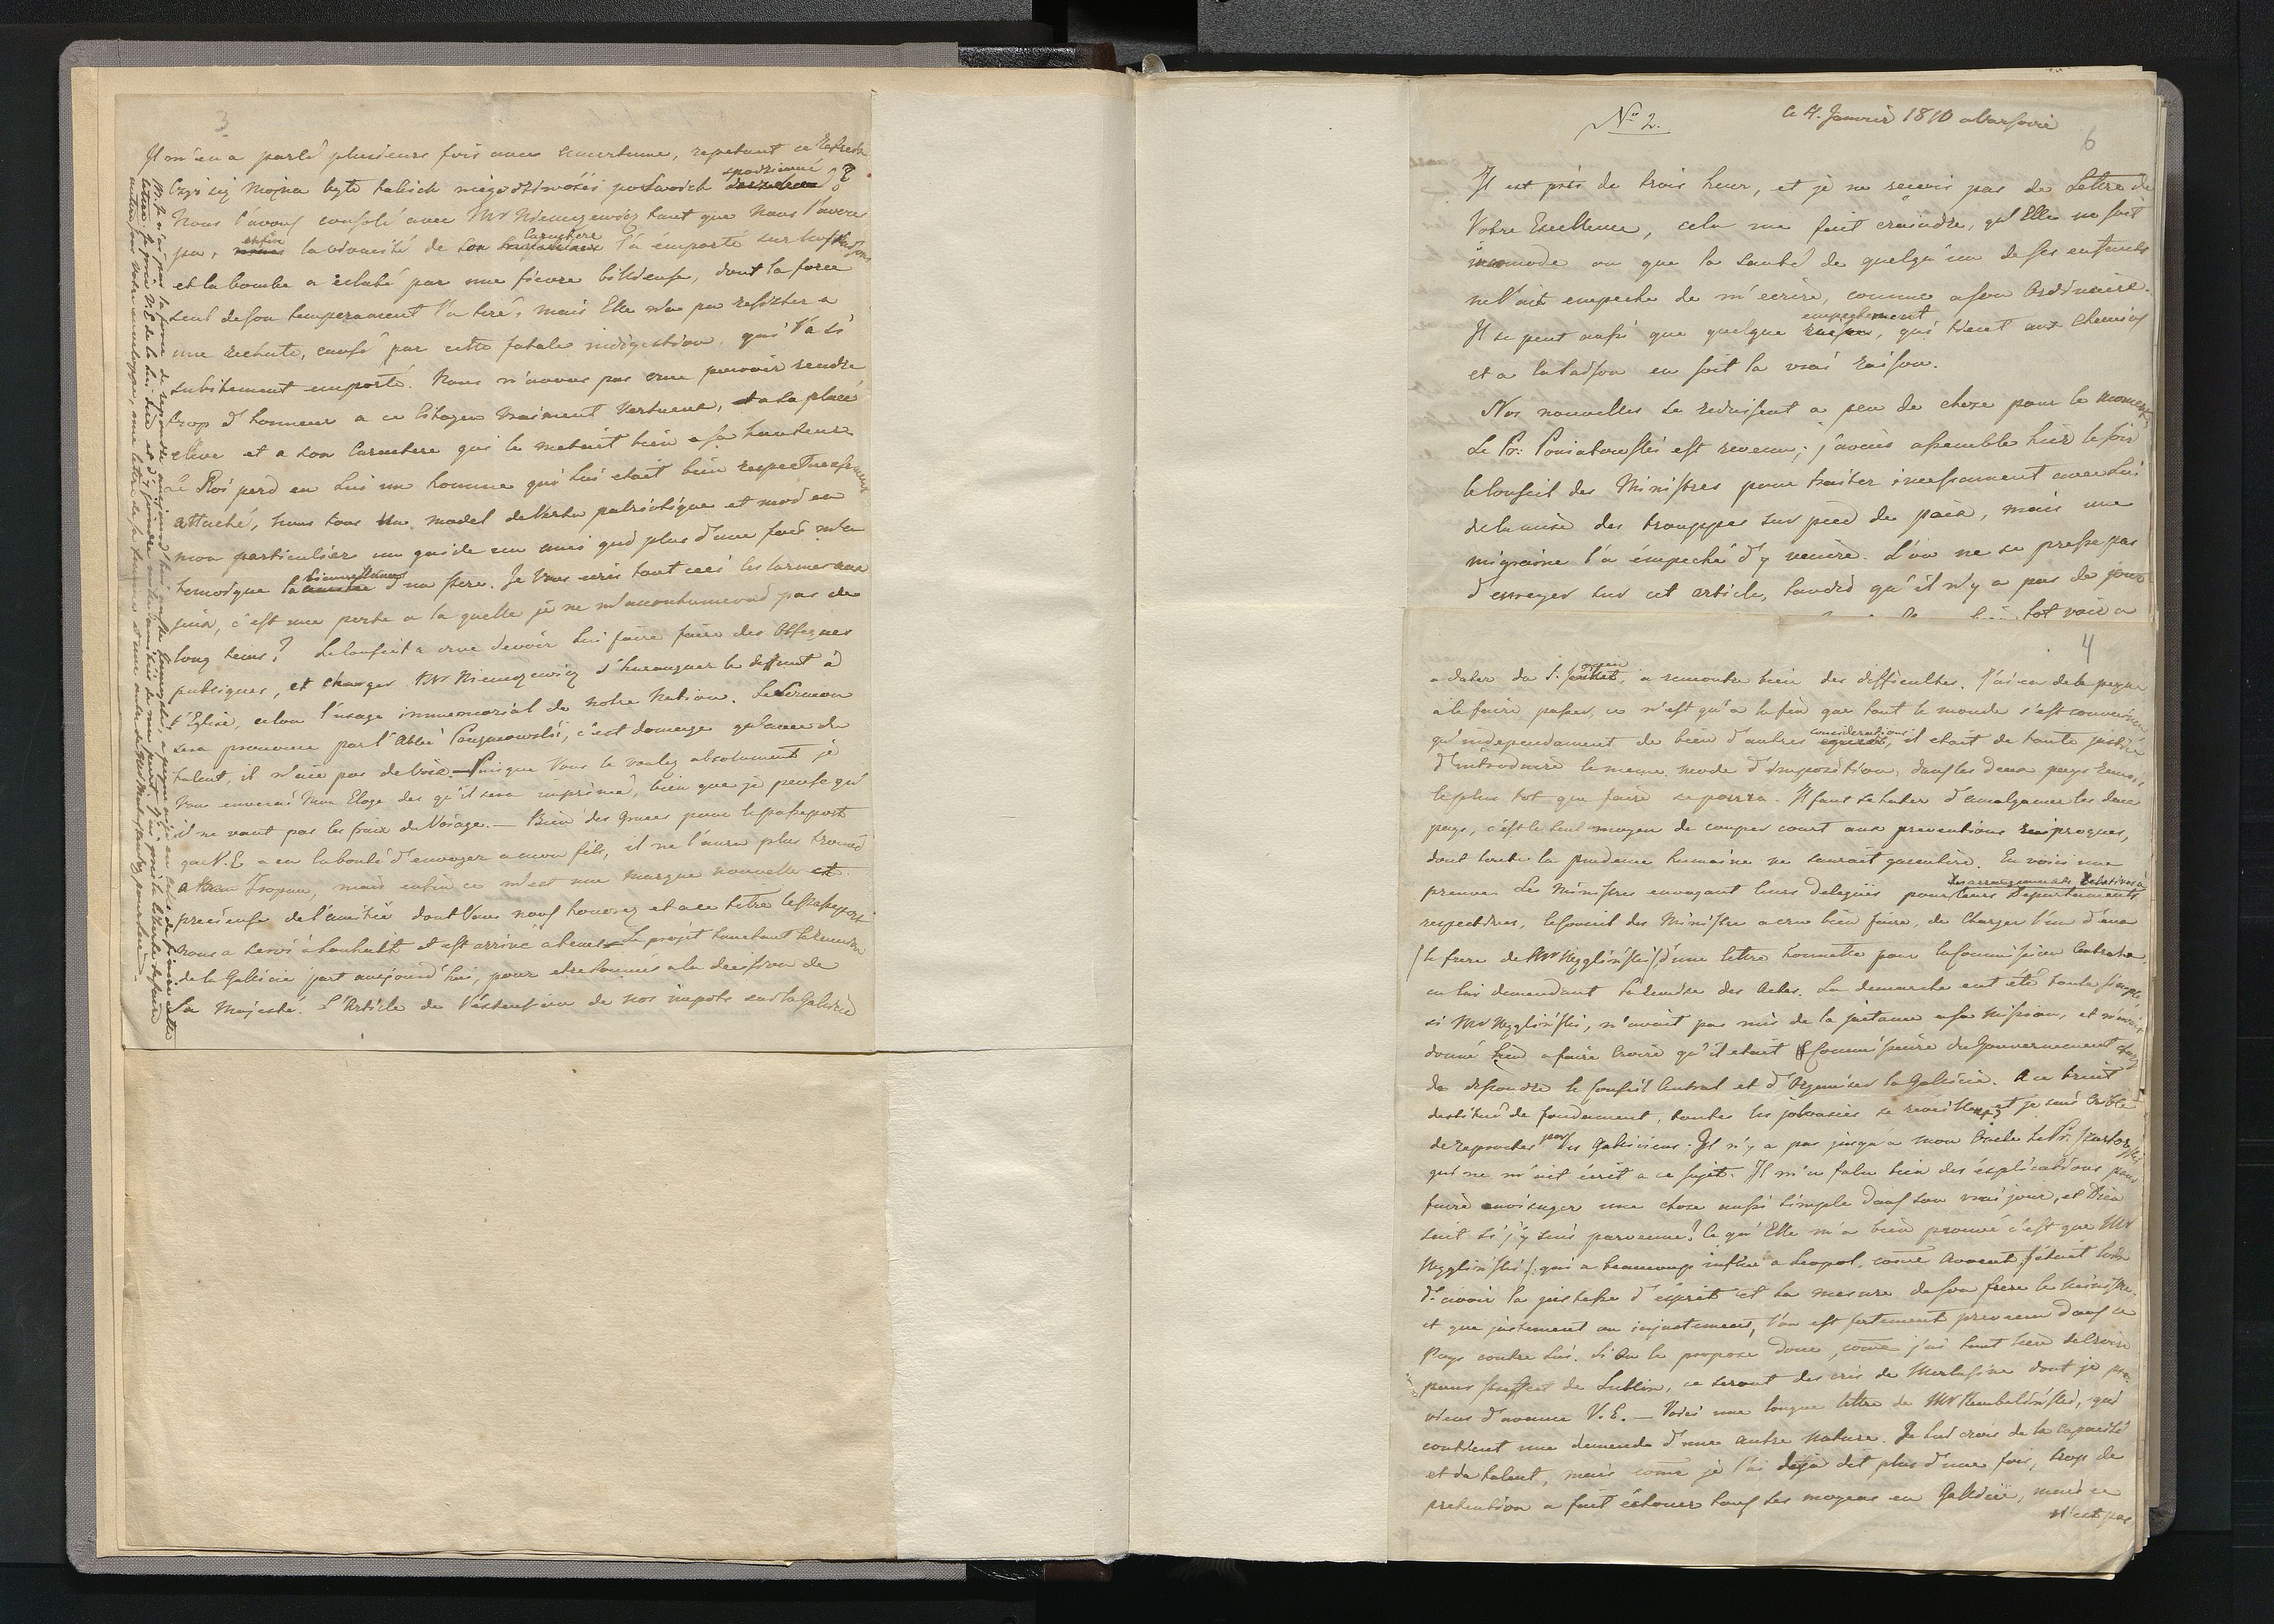 3
Il m'en a parlé plusieurs fois avec amertume, repetant ce Refrein
Czyż się można było takich niegodziwości po swoich spodziewać?
Nous l'avons consolé avec Mr Niemczewicz tant que nous l'avons
pu, enfin la vivacité de son Caractere l'a emporté sur
et la bombe a éclaté par une fievre bilieuse, dont la force
seul de son temperament l'a tiré, mais Elle n'a pu resister a
une rechute, causé par cette fatale indigestion, qui l'a si
subitement emporté. Nous n'avons pas crue pouvoir rendre
trop d'honneur a ce Citoyen vraiment Vertueux, a sa place
élevé et a son Caractere qui le metait bien a sa hauteur
Le Roi perd en lui un homme qui lui etait bien respectueusement
attaché, nous tous un model de Vertu patriotique et moi en
mon particulier un guide un ami qui plus d'une fois m'a
temoigné la bienveillance d'un Pere. Je Vous écris tout ceci les larmes aux
yieux, c'est une perte a la quelle je ne m'accoutumerai pas de
long tems! Le Conseil a crue devoir lui faire faire des Obseques
publiques, et charger Mr Niemczewicz d'haranguer le deffunt à
l'Eglise, selon l'usage immemorial de notre Nation. Le Sermon
sera prononcé par l'Abbé Prazmowski, c'est domage qu'avec du
talent, il n'aie pas de voix — Puisque Vous le voulez absolument je
Vous enverai Mon Eloge des qu'il sera imprimé, bien que je pense qu'
il ne vaut pas les fraix du Voiage. — Bien des Graces pour le passeport
que V. E. a eu la bonté d'envoyer a mon fils, il ne l'aura plus trouvé
a Troppau, mais enfin ce m'est une marque nouvelle et
precieuse de l'amitié dont Vous nous honorez et a ce titre le passeport
nous a servi à souhait et est arrivé a tems — Le projet touchant la reunion
de la Galicie part aujourd'hui, pour etre soumis a la decision de
Sa Majesté. L'Article de l'éxtension de nos impots sur la Galicie
M. je n'ai pas la force de repondre aujourd'hui a
lettre; je prie V. E. de la lui lire et d'y joindre mille amitiés de ma part.
autre sous notre enveloppe, une lettre de sa femme et une autre de Md
No 2.
le 4. Janvier 1810 a Varsovie
6
Il est près de trois heur, et je ne reçois pas de Lettre de
Votre Excellence, cela me fait craindre, qu'Elle ne soit
incomode ou que la santé de quelqu'un de ses enfents
ne l'ait empeché de m'ecrire, comme a son Ordinaire.
Il se peut aussi que quelque empechement, qui tient aux Chemins
et a la saison en soit la vrai raison.
Nos nouvelles se reduisent a peu de chose pour le moment
Le Pr: Poniatowski est revenu; j'avais assemble hier le soir
le Conseil des Ministres pour traiter incessament avec lui
de la mise des trouppes sur pied de paix, mais une
migraine l'a émpeché d'y venire. L'on ne se presse pas
d'envoyer sur cet article, tandis qu'il n'y a pas de jour
4
a dater du 1. Juin, a rencontre bien des difficultes. J'ai eu de la peyne
a le faire passer, ce n'est qu'a la fin que tout le monde s'est convaincu
qu'independament de bien d'autres considerations, il etait de toute justice
d'introduire le meme mode d'imposition, dans les deux pays reunis
le plus tot que faire se pourra. Il faut se hater d'amalgamer les deux
pays, c'est le seul moyen de couper court aux preventions reciproques,
dont toute la prudence humaine ne saurait garentire. En voici une
preuve. Les Ministres envoyant leurs deleguès pour les arrangements relatives à leurs Departements
respectives, le Conseil des Ministre a crue bien faire, de charger l'un d'eux
(le frere de Mr Węgliński) d'une lettre honnette pour la Commission Centrale,
en lui demandant la remise des Actes. La demarche eut été toute simple,
si Mr Węgliński, n'avait pas mis de la jactance a sa Mission, et n'avait
donné lieu a faire croire qu'il etait Commissaire du Gouvernement chargé
de dissoudre le Conseil Central et d'Organiser la Galicie. A ce bruit
destitué de fondement, toutes les jalousies se reveillent, et je suis criblé
de reproches par les Galiciens. Il n'y a pas jusqu'a mon Oncle le Pr: Czartoryski
qui ne m'ait écrit a ce sujet. Il m'a falu bien des éxplications pour
faire envisager une chose aussi simple dans son vrai jour, et Dieu
sait si j'y suis parvenue! Ce qu'Elle m'a bien prouvé c'est que Mr
Węgliński (: qui a beaucoup influé a Leopol, come Avocat :) etait loin
d'avoir la justesse d'ésprit et la mesure de son frere le Ministre.
et que justement ou injustement, l'on est fortement prevenu dans ce
Pays contre lui. Si on le propose donc, come j'ai tout lieu de croire
pour Prefect de Lublin, ce seront des cris de Merlusine dont je pre-
viens d'avance V. E. — Voici une longue lettre de Mr Rembeliński, qui
contient une demande d'une autre Nature. Je lui crois de la capacité
et du talent, mais come je l'ai deja dit plus d'une fois, trop de
pretention a fait échouer tous ses moyens en Galicie, mais ce
n'est pas